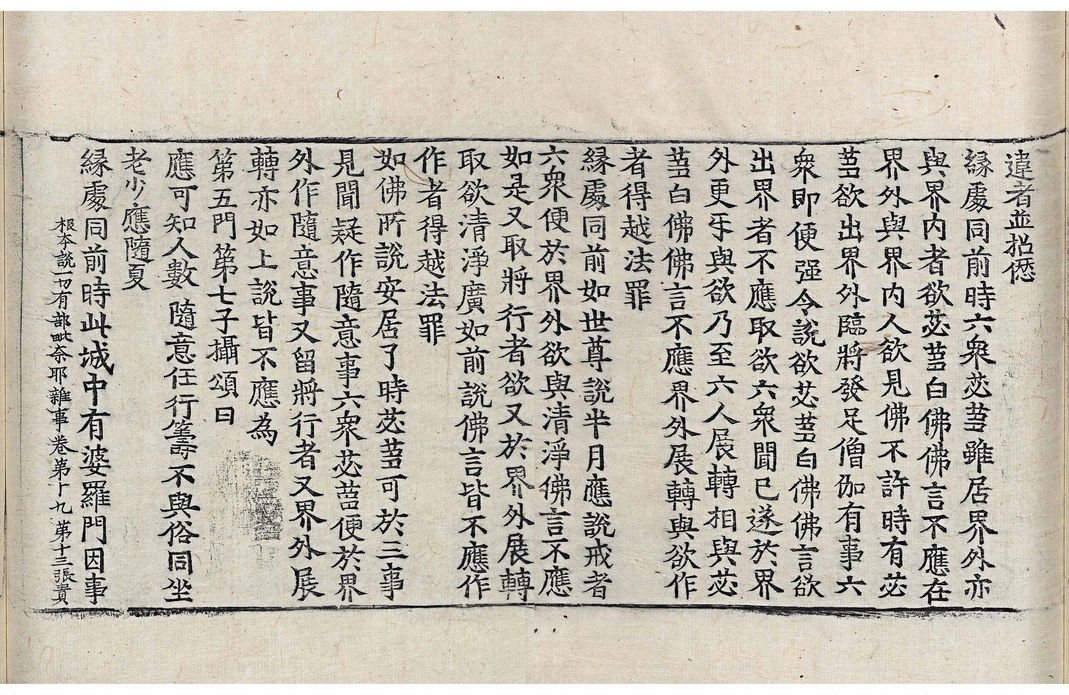 違者並招愆
縁處同前時六衆苾蒭雖居界外亦
與界内者欲苾蒭白佛佛言不應在
界外與界内人欲見佛不許時有苾
蒭欲出界外臨將發足僧伽有事六
衆即便强令說欲苾蒭白佛佛言欲
出界者不應取欲六衆聞已遂於界
外更互與欲乃至六人展轉相與苾
蒭白佛佛言不應界外展轉與欲作
者得越法罪
縁處同前如世尊說半月應說戒者
六衆便於界外欲與清淨佛言不應
如是又取將行者欲又於界外展轉
取欲清淨廣如前說佛言皆不應作
作者得越法罪
如佛所說安居了時苾蒭可於三事
見聞疑作隨意事六衆苾蒭便於界
外作隨意事又留將行者又界外展
轉亦如上說皆不應為
第五門第七子攝頌曰
應可知人數 隨意任行籌 不與俗同坐
老少應隨夏
縁處同前時此城中有婆羅門因事
根本說一切有部毗奈耶雜事卷第十九 第十三張 貴